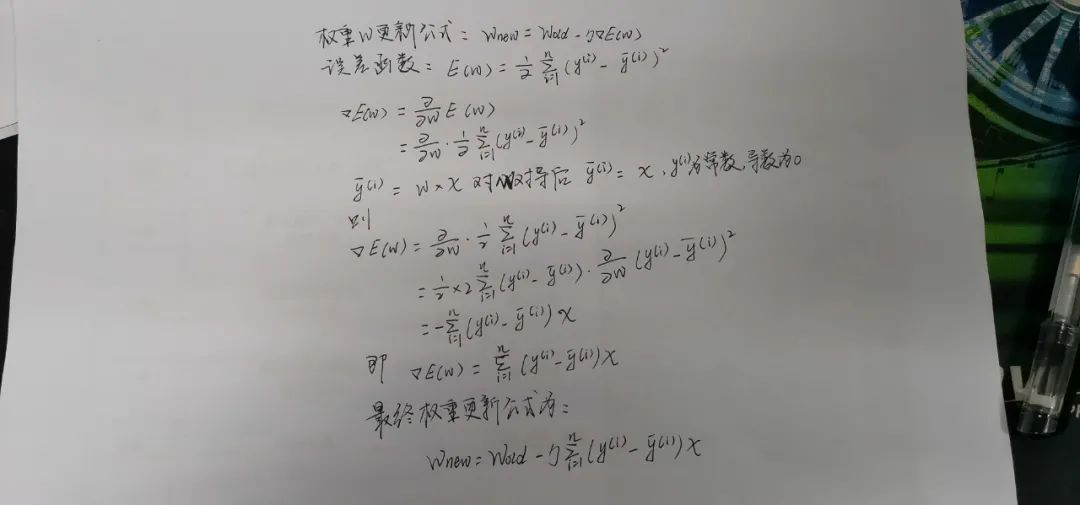 权重W更新公式: Wnew = Wold - η∇E(w)
误差函数: E(w) = 1/2 ∑_{i=1}^{n} (y⁽ⁱ⁾ - ȳ⁽ⁱ⁾)²
∇E(w) = ∂/∂w E(w)
= ∂/∂w · 1/2 ∑_{i=1}^{n} (y⁽ⁱ⁾ - ȳ⁽ⁱ⁾)²
ȳ⁽ⁱ⁾ = W × X 对W求导后 ȳ⁽ⁱ⁾ = x, y⁽ⁱ⁾为常数,导数为0
则
∇E(w) = ∂/∂w · 1/2 ∑_{i=1}^{n} (y⁽ⁱ⁾ - ȳ⁽ⁱ⁾)²
= 1/2 × 2 ∑_{i=1}^{n} (y⁽ⁱ⁾ - ȳ⁽ⁱ⁾) · ∂/∂w (y⁽ⁱ⁾ - ȳ⁽ⁱ⁾)²
= -∑_{i=1}^{n} (y⁽ⁱ⁾ - ȳ⁽ⁱ⁾) x
即 ∇E(w) = ∑_{i=1}^{n} (y⁽ⁱ⁾ - ȳ⁽ⁱ⁾) x
最终权重更新公式为:
Wnew = Wold - η ∑_{i=1}^{n} (y⁽ⁱ⁾ - ȳ⁽ⁱ⁾) x